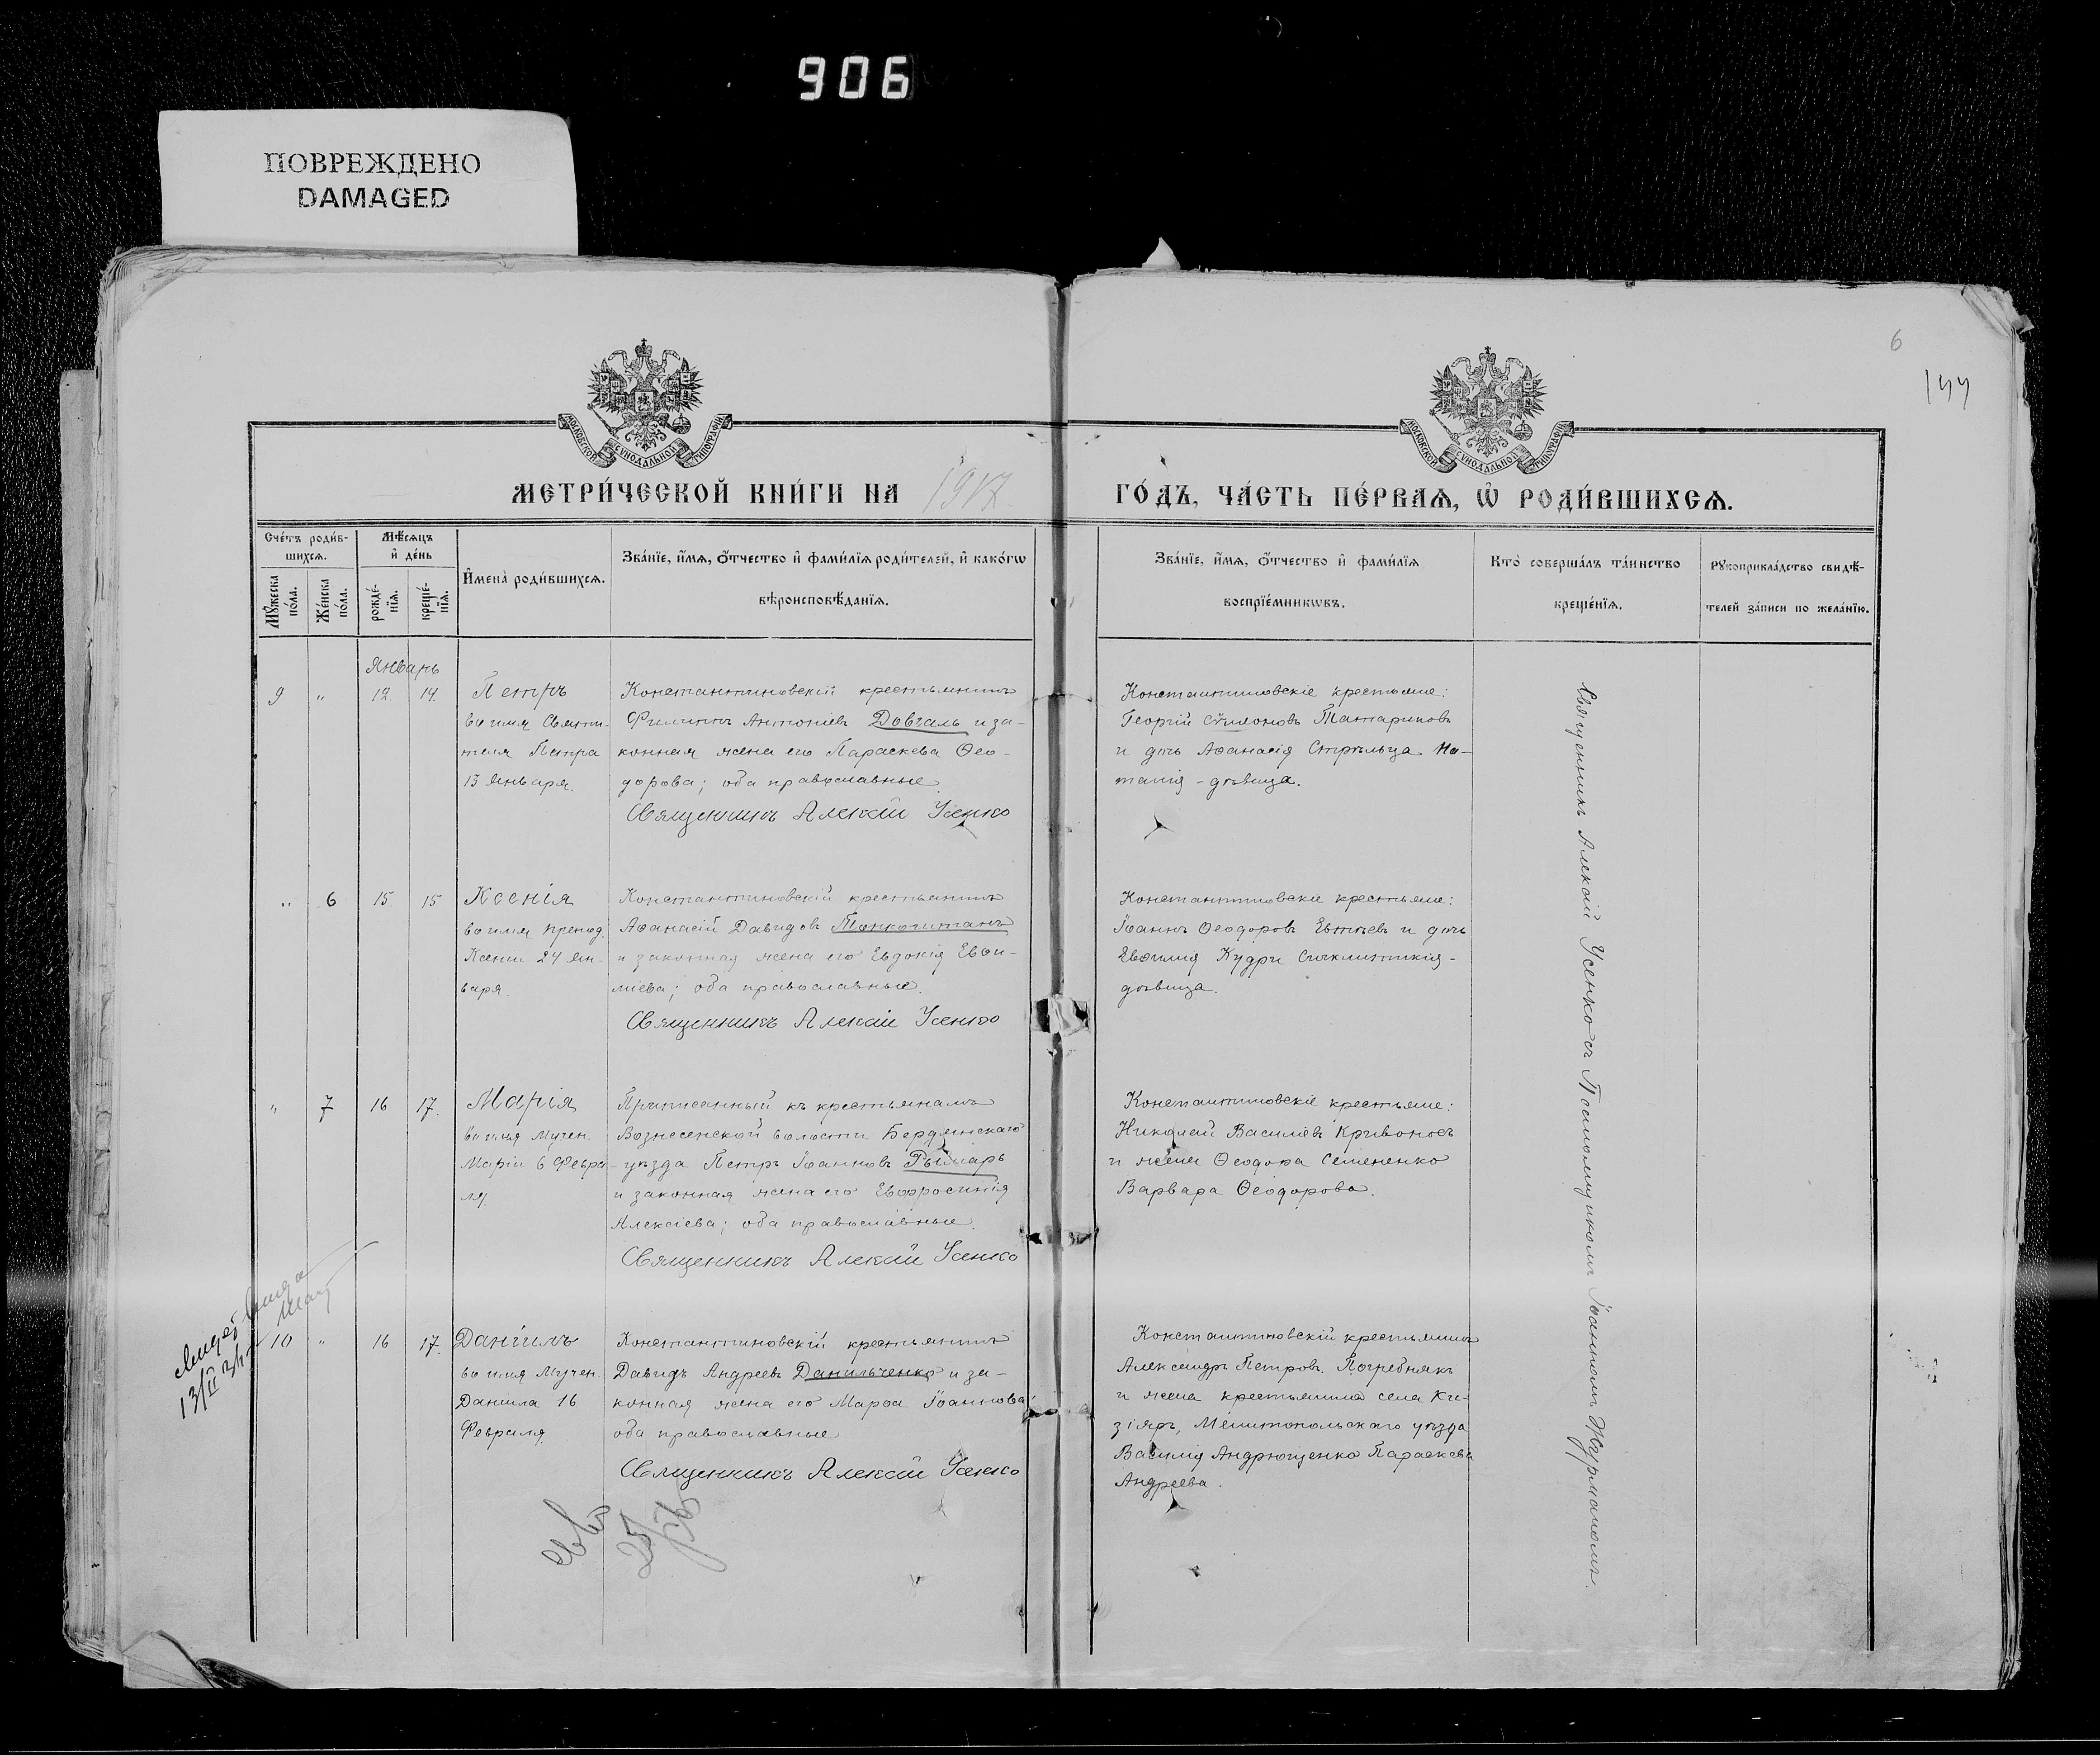 906
ПОВРЕЖДЕНО
DAMAGED
6
144
МОСКОВСКОЙ СУНОДАЛЬНОЙ ТИПОГРАФІИ
МОСКОВСКОЙ СУНОДАЛЬНОЙ ТИПОГРАФІИ
МЕТРИ́ЧЕСКОЙ КНИ́ГИ НА 1917
ГО́ДЪ, ЧА́СТЬ ПЕ́РВАѦ, Ѡ РОДИ́ВШИХСѦ.
Сче́тъ роди́в-
шихсѧ.
Мꙋ́жеска по́ла.
Же́нска по́ла.
Мѣ́сѧцъ
и҆ де́нь
рожде́-
нїѧ.
креще́-
нїѧ.
И҆мена̀ роди́вшихсѧ.
Зва́нїе, и҆́мѧ, ѻ҆́тчество и҆ фами́лїѧ роди́телей, и҆ како́гѡ
вѣроисповѣ́данїѧ.
Зва́нїе, и҆́мѧ, ѻ҆́тчество и҆ фами́лїѧ
воспрїе́мникѡвъ.
Кто̀ соверша́лъ та́инство
креще́нїѧ.
Рꙋкоприкла́дство свидѣ́-
телей за́писи по жела́нїю.
Январь
9 " 12. 14. Петръ
во имя Святи-
теля Петра
13 Января.
Константиновскій крестьянинъ
Филиппъ Антоніевъ Довгаль и за-
конная жена его Параскева Ѳео-
дорова; оба православные.
Священникъ Алексій Усенко
Константиновскіе крестьяне:
Георгій Сѵмоновъ Татариновъ
и дочь Аѳанасія Стрѣльца На-
талія - дѣвица.
" 6 15. 15 Ксенія
во имя препод.
Ксеніи 24 Ян-
варя.
Константиновскій крестьянинъ
Аѳанасій Давидовъ Тонкоштанъ
и законная жена его Евдокія Евѳи-
міева; оба православные.
Священникъ Алексій Усенко
Константиновскіе крестьяне:
Іоаннъ Ѳеодоровъ Евтѣевъ и дочь
Евѳимія Кудри Сѵнклитикія -
дѣвица.
" 7 16 17. Марія
во имя Мучен.
Маріи 6 Февра-
ля.
Приписанный къ крестьянамъ
Вознесенской волости Бердянскаго
уѣзда Петръ Іоанновъ Рымарь
и законная жена его Евфросинія
Алексіева; оба православные.
Священникъ Алексій Усенко
Константиновскіе крестьяне:
Николай Василіевъ Кривоносъ
и жена Ѳеодора Семененко
Варвара Ѳеодорова.
10 " 16 17. Даніилъ
во имя Мучен.
Даніила 16
Февраля
Константиновскій крестьянинъ
Давидъ Андреевъ Данильченко и за-
конная жена его Марѳа Іоаннова;
оба православные
Священникъ Алексій Усенко
Константиновскій крестьянинъ
Александръ Петровъ Погребнякъ
и жена крестьянина села Ки-
зіяръ, Мелитопольскаго уѣзда
Василія Андрющенко Параскева
Андреева.
Священникъ Алексій Усенко съ Псаломщикомъ Іоанномъ Журманомъ.